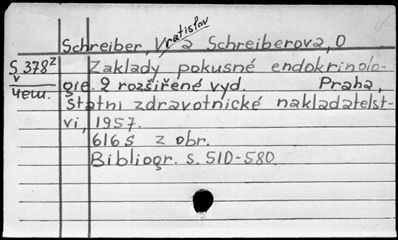 Vratislav
Schreiber, V. a Schreiberova, O
S 378² Zaklady pokusné endokrinolo-
v gie. 2 rozšířené vyd. Praha,
Státní zdravotnické nakladatelst-
ví, 1957.
616 s z obr.
Bibliogr. s. 510-580